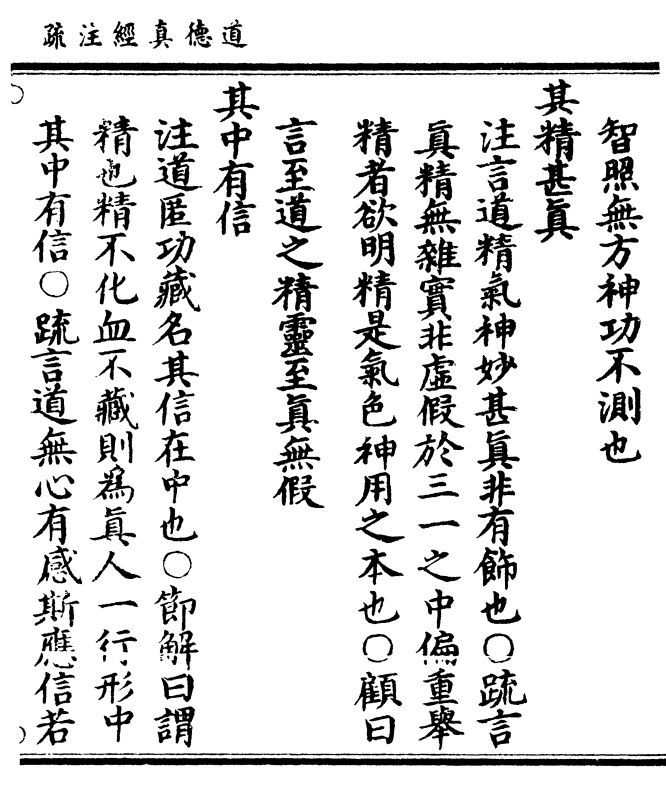 道德真經注疏
智照無方神功不測也
其精甚眞
注言道精氣神妙甚眞非有飾也〇疏言
眞精無雜實非虛假於三一之中偏重舉
精者欲明精是氣色神用之本也〇顧曰
言至道之精靈至眞無假
其中有信
注道匿功藏名其信在中也〇節解曰謂
精也精不化血不藏則爲眞人一行形中
其中有信〇疏言道無心有感斯應信若